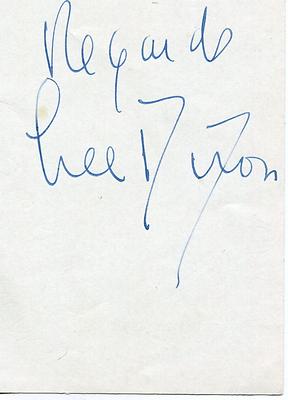 Regards
Lee Dixon